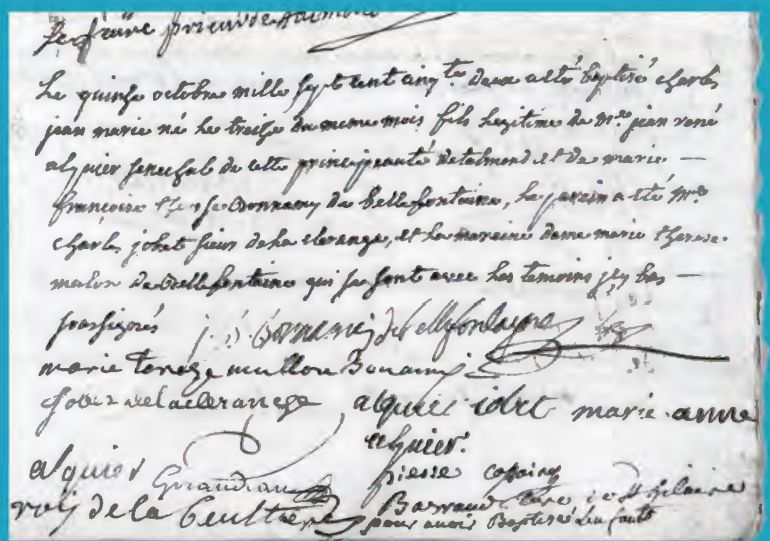 Lefrane prieur de talmond
Le quinse octobre mille sept cent cinq.te deux a esté baptisé charles
jean marie né le treise du meme mois fils legitime de Mre jean rené
alquier senechal de cette principeauté de talmond et de marie
françoise therese Bonnamy de bellefontaine, le parein a été Mre
charles jobet sieur de la clerange, et la mareine dame marie therese
malon de Bellefontaine qui se sont avec les temoins icy bas
soussignés j. Bonnamy de bellefontayne
marie tereze mallon Bonami
jobet de la clerange alquier jobet marie anne
alquier.
alquier Giraudeau pierre
roy de la Barraud de St hilaire
pour avoir Baptisé l'enfant